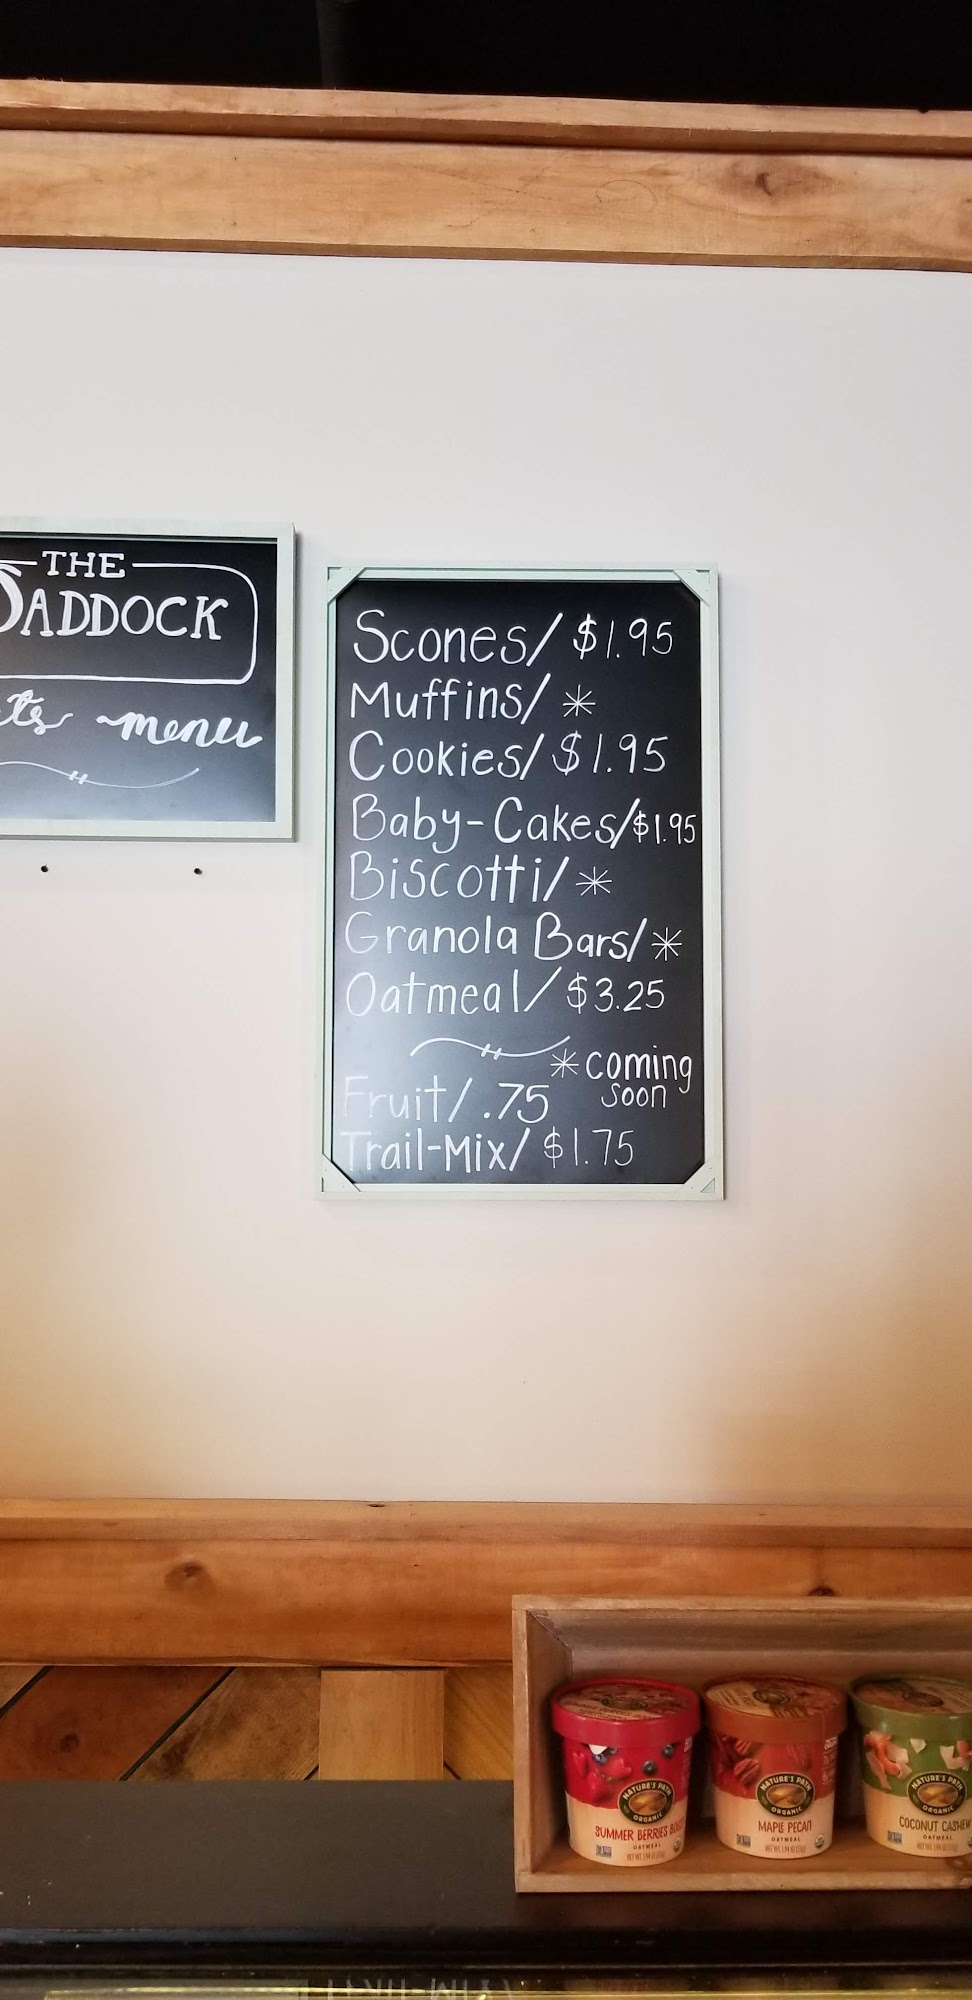 THE
PADDOCK
menu
Scones/ $1.95
Muffins/ *
Cookies/ $1.95
Baby-Cakes/$1.95
Biscotti/ *
Granola Bars/ *
Oatmeal/ $3.25
*coming
soon
Fruit/ .75
Trail-Mix/ $1.75
NATURE'S PATH
ORGANIC
SUMMER BERRIES
OATMEAL
NATURE'S PATH
ORGANIC
MAPLE PECAN
OATMEAL
NATURE'S PATH
ORGANIC
COCONUT CASHEW
OATMEAL